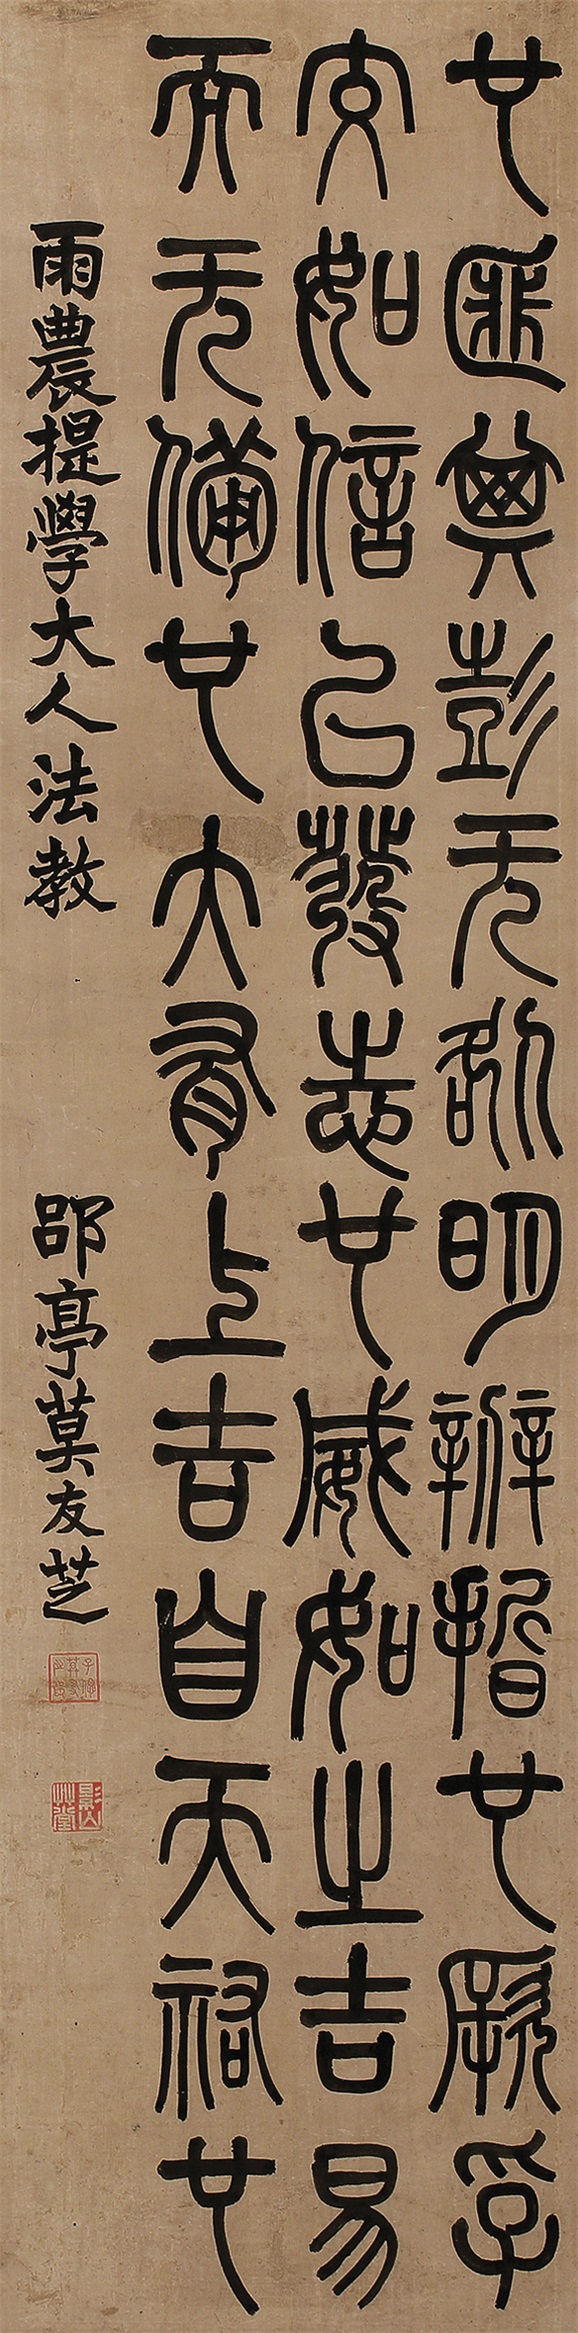 也匪其彭无咎明辨晢也厥孚
交如信以發志也威如之吉易
而无備也大有上吉自天祐也
雨農提學大人法教
郘亭莫友芝
影山草堂